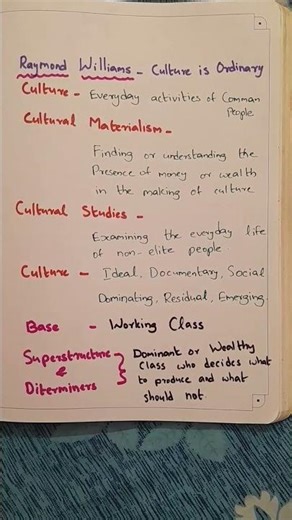 Raymond Williams - Culture is Ordinary
Culture - Everyday activities of Comman
People
Cultural Materialism -
Finding or understanding the
Presence of money or wealth
in the making of culture
Cultural Studies -
Examining the everyday life
of non-elite people
Culture - Ideal, Documentary, Social
Dominating, Residual, Emerging.
Base - Working Class
Superstructure & Diterminers } Dominant or Wealthy
Class who decides what
to produce and what
should not.